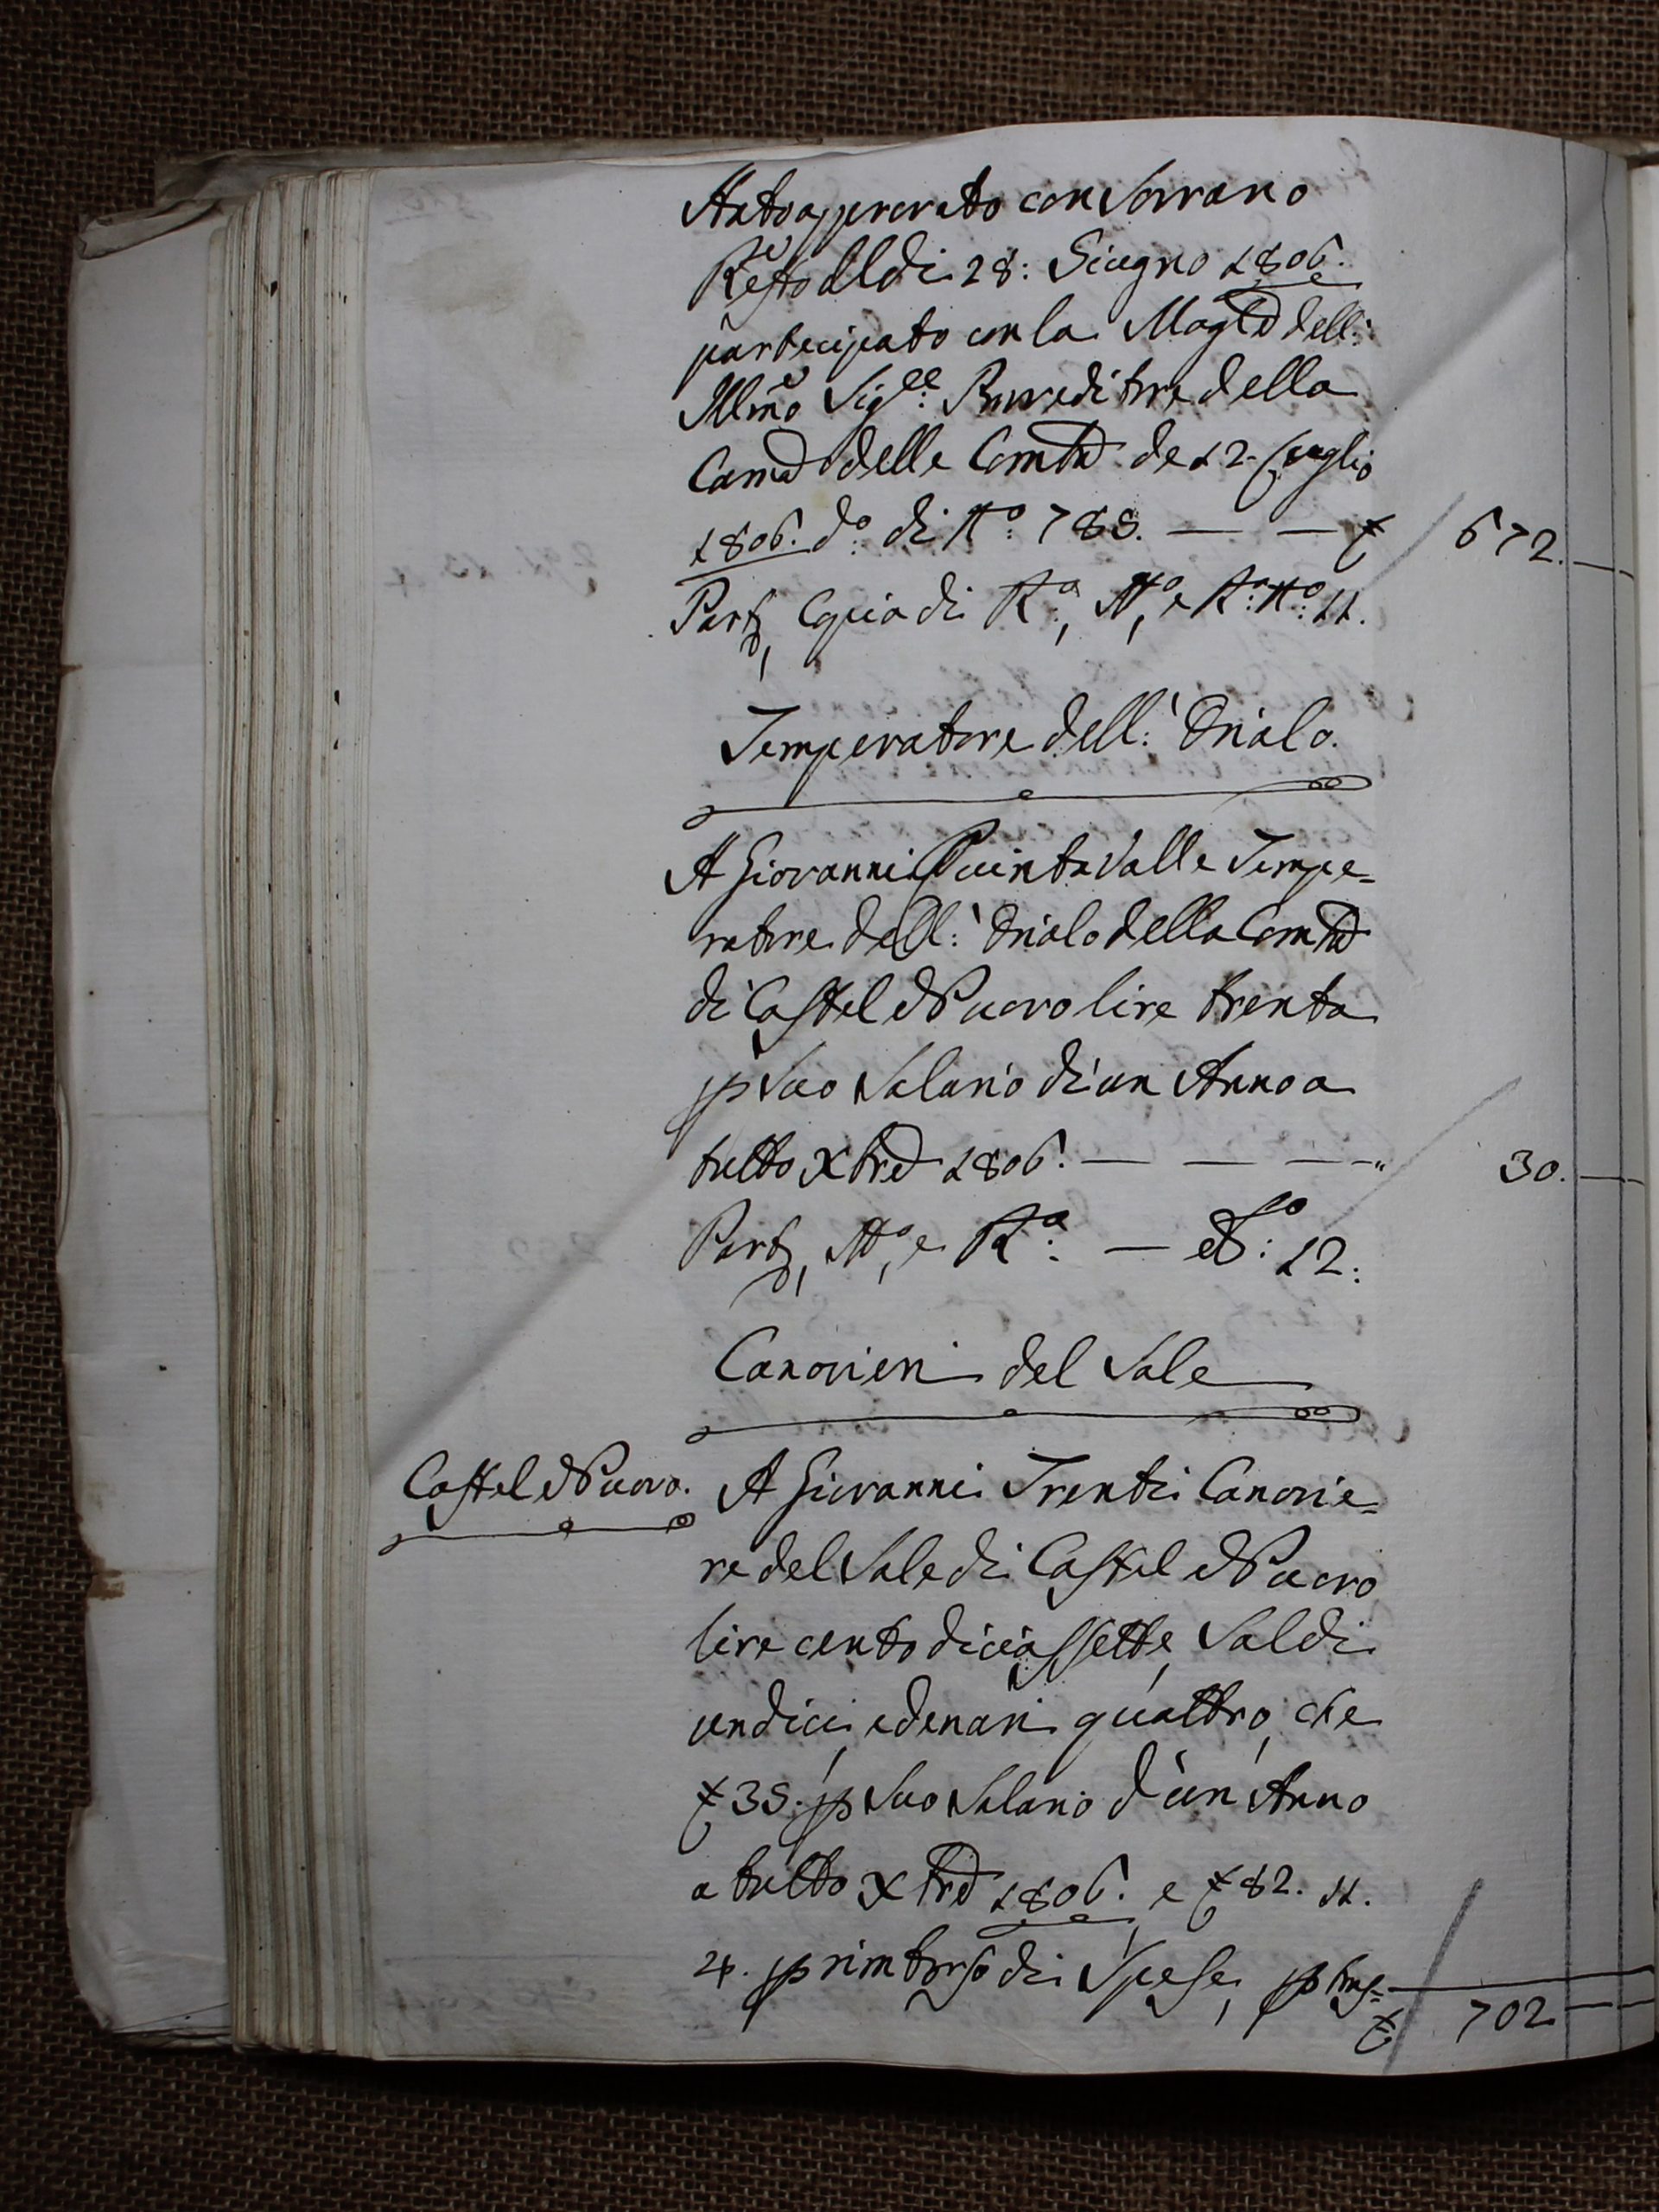 Stato approvato con Sovrano
Resto al di 28: Giugno 1806.
partecipato con la Magtà dell:
Illmo Sigre: Provveditore della
Camà delle Comtà de 12. Luglio
1806. do: di No: 789. — — £ 672. —
Parta, Copia di Ra:, No, e Ra: No: 11.
Temperatore dell:' Oriolo.
A Giovanni Quinta Valle Tempe=
ratore dell:' Oriolo della Comtà
di Castel Nuovo lire trenta
p suo Salario di un Anno a
tutto Xbre 1806. — — — " 30. —
Parta, No, e Ra: — No: 12:
Canovieri del Sale
Castel Nuovo. A Giovanni Trenti Canovie=
re del Sale di Castel Nuovo
lire cento diciassette, Soldi
undici, e denari quattro, che
£ 35. p suo Salario d'un Anno
a tutto Xbre 1806. e £ 82. 11.
4. p rimborso di Spese, p tras=
£ 702 —